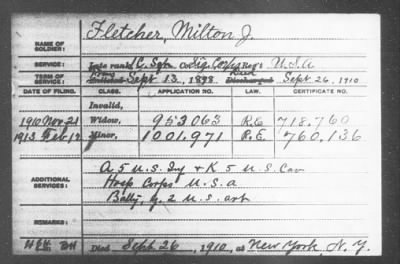 NAME OF SOLDIER: Fletcher, Milton J.
SERVICE: Late rank, C. Sgt. Co. Sig. Corps Reg't U.S.A
TERM OF SERVICE: Enlisted Sept 13, 1898. Died Discharged Sept. 26, 1910
DATE OF FILING. CLASS. APPLICATION NO. LAW. CERTIFICATE NO.
Invalid,
1910 Nov 21 Widow, 953063 R.E. 718.760
1913 Feb 17 Minor, 1001.971 R.E. 760,136
ADDITIONAL SERVICES: A 5 U.S. Inf + K 5 U.S. Cav
Hosp Corps U.S.a
Batty, G, 2 U.S. art
REMARKS:
Died Sept 26, 1910, at New York, N.Y.